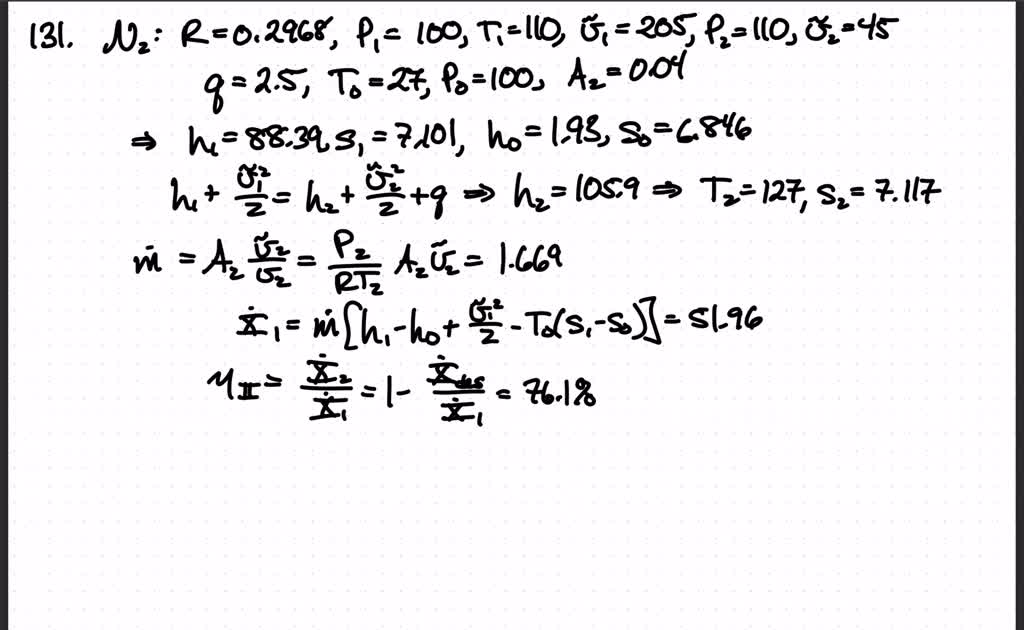 131. N₂: R=0.2968, P₁=100, T₁=110, ṽ₁=205, P₂=110, ṽ₂=45
q=2.5, T₀=27, P₀=100, A₂=0.04
⇒ h₁=88.39, s₁=7.101, h₀=1.93, s₀=6.846
h₁ + ṽ₁²/2 = h₂ + ṽ₂²/2 + q ⇒ h₂=105.9 ⇒ T₂=127, s₂=7.117
ṁ = A₂ ṽ₂/v₂ = P₂/RT₂ A₂ṽ₂ = 1.669
Ẋ₁ = ṁ[h₁-h₀+ ṽ₁²/2 - T₀(s₁-s₀)] = 51.96
η_II = Ẋ₂/Ẋ₁ = 1- Ẋdes/Ẋ₁ = 76.1%